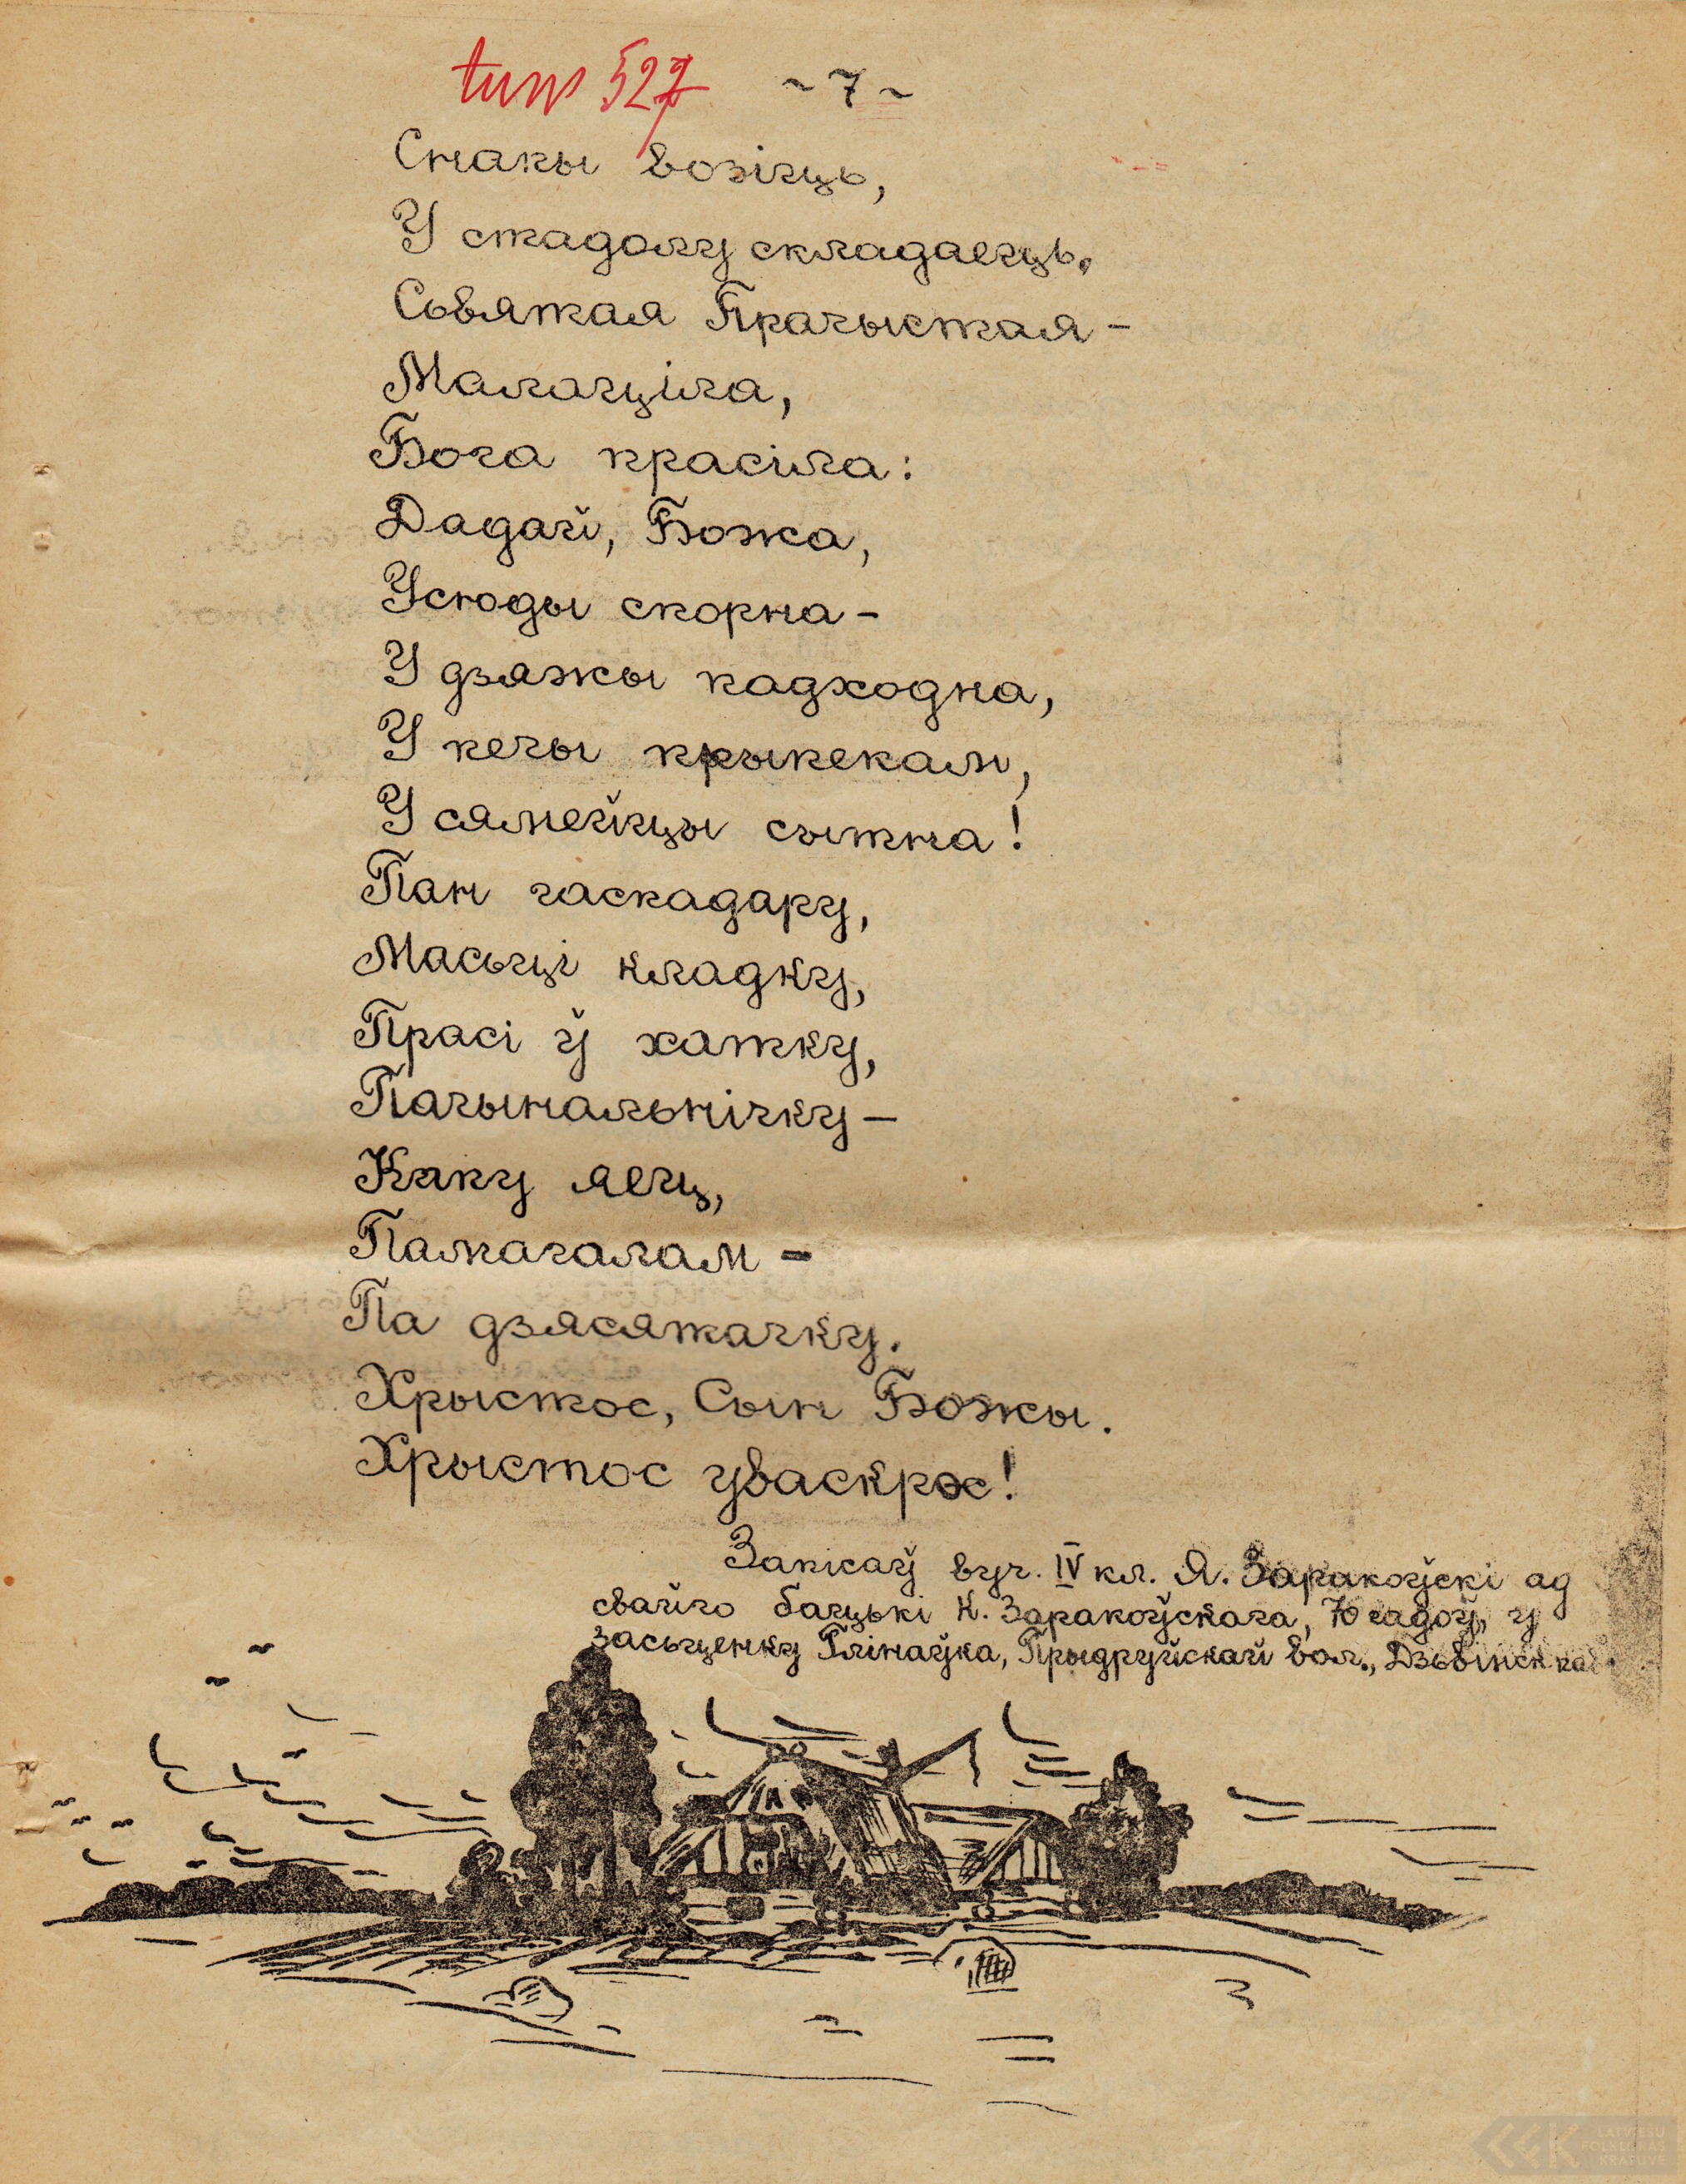 turp 527 ~ 7 ~
Снапы возіць,
У стадолу складаець.
Сьвятая Прачыстая –
Малаціла,
Бога прасіла:
Дадай, Божа,
Усюды спорна –
У дзяжы падходна,
У печы прыпекам,
У сямейцы сытна!
Пан гаспадару,
Масьці кладку,
Прасі ў хатку,
Пачынальнічку –
Капу яец,
Памагалам –
Па дзясяточку.
Хрыстос, Сын Божы.
Хрыстос уваскрос!
Запісаў вуч. IV кл. Я. Заракоўскі ад
свайго бацькі К. Заракоўскага, 70 гадоў, у
засьценку Глінаўка, Прыдруйскай вол., Дзьвінскаг
LATVIEŠU
FOLKLORAS
KRĀTUVE